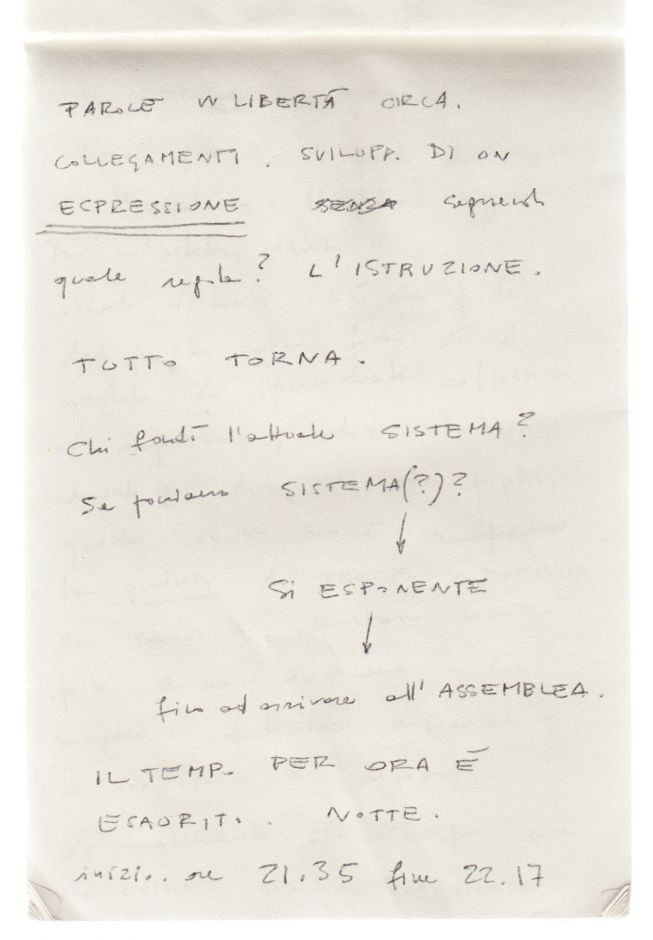 PAROLE IN LIBERTÀ CIRCA.
COLLEGAMENTI. SVILUPP. DI UN
ESPRESSIONE SENZA seguendo
quale regola? L'ISTRUZIONE.
TUTTO TORNA.
Chi fondò l'attuale SISTEMA?
Se SISTEMA(?)?
Si ESPONENTE
fino ad arrivare all'ASSEMBLEA.
IL TEMPO PER ORA È
ESAURITO. NOTTE.
inizio. ore 21.35 fine 22.17